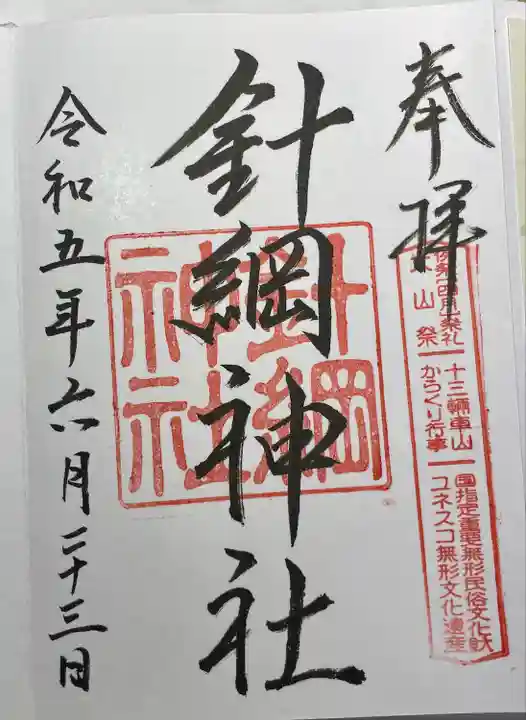 奉拝
山祭
十三輛車山
からくり行事
国指定重要無形民俗文化財
ユネスコ無形文化遺産
針綱神社
針綱
神社
令和五年六月二十三日